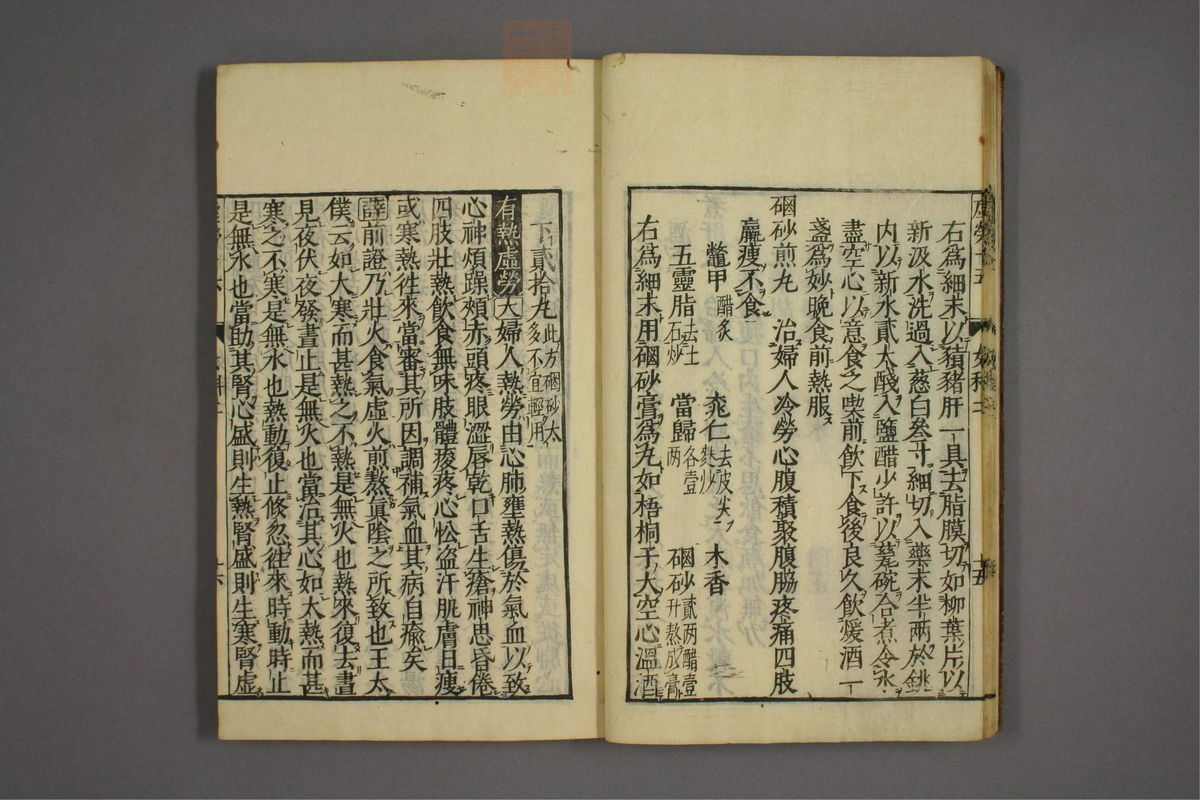 右為細末以豬豬肝一具去脂膜切如柳葉片以
新汲水洗過入葱白叄寸細切入藥末半兩於銚
内以新水貳大醆入鹽醋少許以甆碗合煮令水
盡空心以意食之柴前飲下食後良久飲煖酒一
盞為妙晚食前熱服
硇砂煎丸 治婦人冷勞心腹積聚腹脇疼痛四肢
羸瘦不食
鼈甲醋炙 桃仁去皮尖麩炒 木香
五靈脂去土石炒 當歸各壹两 硇砂貳两醋壹硇砂升熬成膏
右為細末用硇砂膏為丸如梧桐子大空心溫酒
下貳拾九此方硇砂太多不宜輕用
有熱虛勞大婦人熱勞由心肺壅熱傷於氣血以致
心神煩躁頰赤頭疼眼澀唇乾口舌生瘡神思昏倦
四肢壯熱飲食無味肢體痠疼心忪盗汗肌膚日瘦
或寒熱徃來當審其所因調補氣血其病自癒矣
薛前證乃壯火食氣虛火煎熬真陰之所致也王太
僕云如大寒而甚熱之不熱是無火也熱來復去晝
見夜伏夜發晝止是無火也當治其心如太熱而甚
寒之不寒是無水也熱動復止倐忽徃來時動時止
是無水也當助其腎心盛則生熱腎盛則生寒腎虛